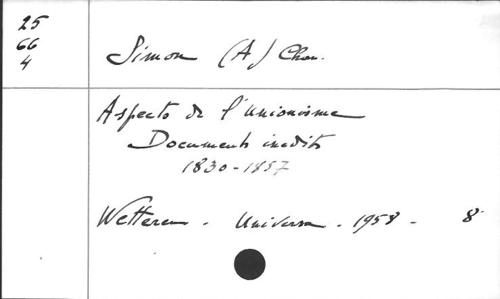 25
66
4
Simon (A) Chan.
Aspects de l'Unionisme
Documents inédits
1830-1857
Wetteren - Universa - 1958 - 8°